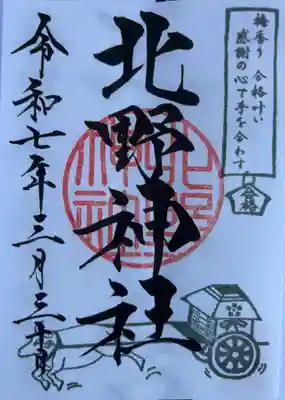 梅香り 合格叶い
感謝の心で手を合わす
合格
北野神社
北野
神社
令和七年三月三十日